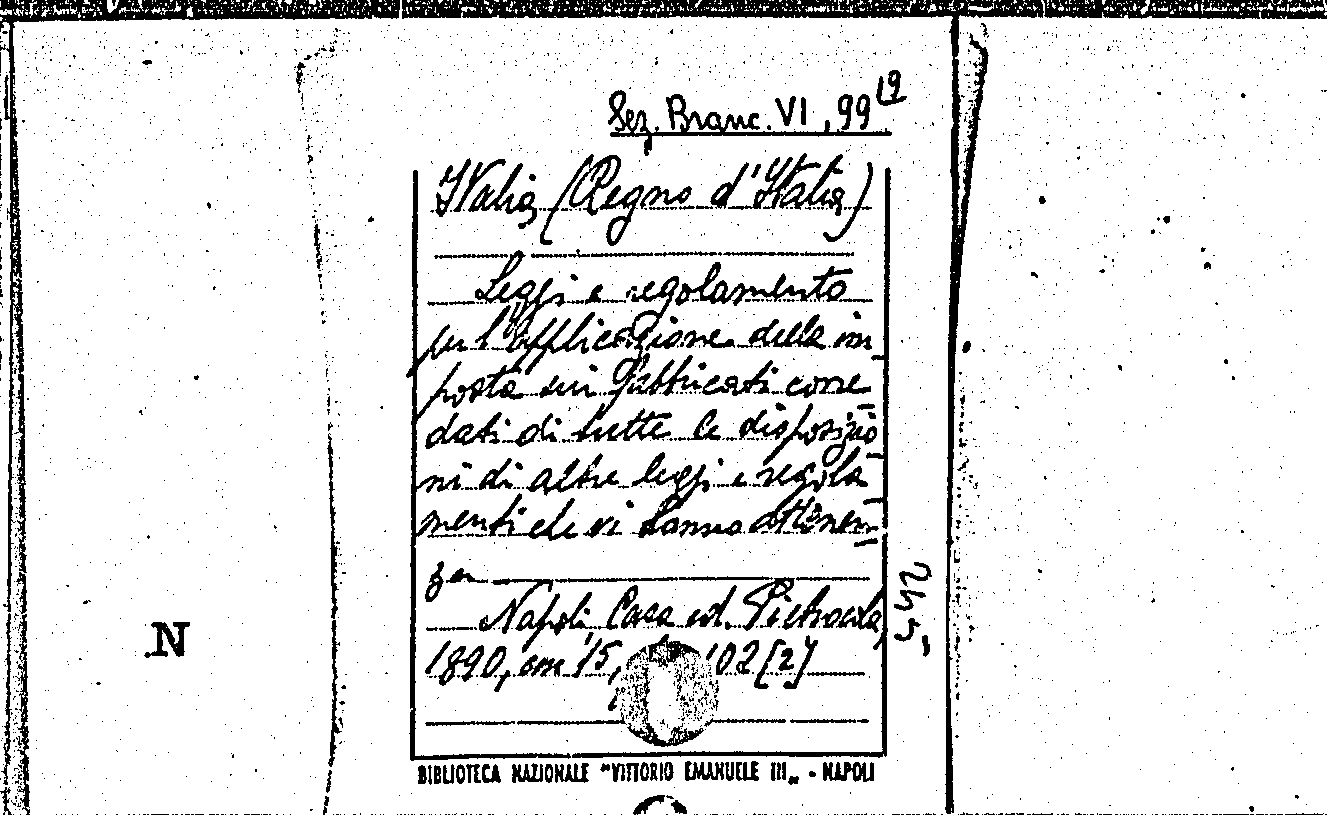 Sez. Branc. VI, 99 19
Italia (Regno d'Italia)
Leggi e regolamento
per l'applicazione della im-
posta sui fabbricati corre-
dati di tutte le disposizio-
ni di altre leggi e regola-
menti che vi hanno attinen-
za
Napoli, Casa ed. Pietrocola,
1890, cm 15, 102 [2]
N
BIBLIOTECA NAZIONALE "VITTORIO EMANUELE III„ - NAPOLI